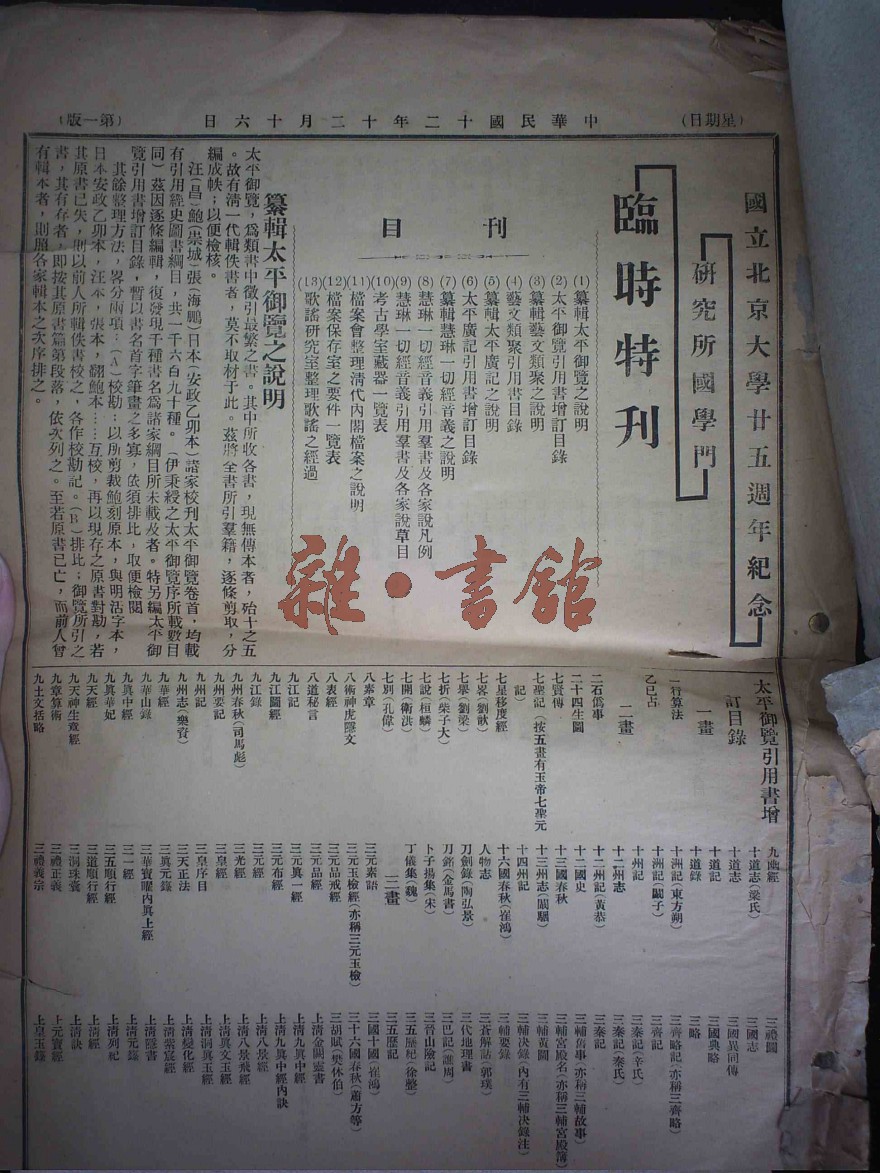 (星期日)
中華民國十二年十二月十六日
(第一版)
國立北京大學廿五週年紀念
研究所國學門
臨時特刊
刊目
(1)纂輯太平御覽之說明
(2)太平御覽引用書增訂目錄
(3)纂輯藝文類聚之說明
(4)藝文類聚引用書目錄
(5)纂輯太平廣記之說明
(6)太平廣記引用書增訂目錄
(7)纂輯慧琳一切經音義之說明
(8)慧琳一切經音義引用羣書及各家說凡例
(9)慧琳一切經音義引用羣書及各家說草目
(10)考古學室藏器一覽表
(11)檔案會整理清代內閣檔案之說明
(12)檔案保存室之要件一覽表
(13)歌謠研究室整理歌謠之經過
纂輯太平御覽之說明
太平御覽,爲類書中徵引最繁之書。其中所收各書,現無傳本者,殆十之五
。故有淸一代輯佚書者,莫不取材于此。茲將全書所引羣籍,逐條剪取,分
編成帙;以便檢核。
汪(昌)鮑(崇城)張(海鵬)日本(安政乙卯本)諸家校刋太平御覽卷首,均載
有引用經史圖書綱目,共一千六百九十種。(伊秉綬之太平御覽序所載數目
同)茲因逐條編輯,復發現千種書名爲諸家綱目所未載及者。特另編太平御
覽引用書增訂目錄,暫以書名首字筆畫之多寡,依須排比,取便檢閱
其餘整理方法,畧分兩項:(A)校勘;以所剪裁鮑刻原本,與明活字本,
日本安政乙卯本,汪本,張本,翻鮑本……互校,再以現存之原書對勘,若
其原書已失,則以前人所輯佚書校之,各作校勘記。(B)排比;御覽所引之
書,其有存者,即按其原書篇第段落,依次列之。至若原書已亡,而前人曾
有輯本者,則照各家輯本之次序排之。
雜·書館
太平御覽引用書增
訂目錄
一畫
一行算法
乙巳占
二畫
二石僞事
二十四生圖
七賢傳
七聖記(按五畫有玉帝七聖元
記)
七星移度經
七畧(劉歆)
七舉(劉梁)
七折(柴子大)
七說(桓麟)
七開(衞洪)
七別(孔偉)
八素章
八表經
八術神虎隱文
八道秘言
九江記
九江圖經
九江錄
九州春秋(司馬彪)
九州要記
九州記
九州志(樂資)
九華經
九華山錄
九眞中經
九眞華妃
九天經
九天神生章經
九章算術
九土文括略
九幽經
十道志(梁氏)
十道志
十道記
十道錄
十洲記(東方朔)
十洲記(闞子)
十州記
十二州志
十二州記(黃恭)
十二國史
十三國春秋
十三州志(闞駰)
十四州記
十六國春秋(崔鴻)
人物志
刀劍錄(陶弘景)
刀銘(金馬書)
卜子揚集(宋)
丁儀集(魏)
三畫
三元素語
三元玉檢經(亦稱三元玉檢)
三元品戒經
三元品經
三元眞一經
三元布經
三元經
三光經
三皇經
三皇序目
三天正法
三眞元錄
三華寶曜內眞上經
三一經
三五順行經
三道順行經
三洞珠囊
三禮正義
三禮義宗
三禮圖
三國志
三國異同傳
三國典略
三略
三齊略記(亦稱三齊略)
三齊記
三秦記(辛氏)
三秦記(秦氏)
三秦記
三輔舊事(亦稱三輔故事)
三輔宮殿名(亦稱三輔宮殿簿)
三輔黃圖
三輔決錄(內有三輔決錄注)
三輔要錄
三蒼解詁(郭璞)
三代地理書
三晉山險記
三巴記(譙周)
三五歷紀(徐整)
三五歷記
三國十國(崔鴻)
三十六國春秋(蕭方等)
三胡賦(樊休伯)
上淸金闕靈書
上淸九眞中經
上淸九眞中經內訣
上淸八景經
上淸八景飛經
上淸眞文玉經
上淸洞眞玉經
上淸變化經
上淸紫宸經
上淸隱書
上淸元錄
上淸列紀
上淸經
上淸訣
上元寶經
上皇玉籙